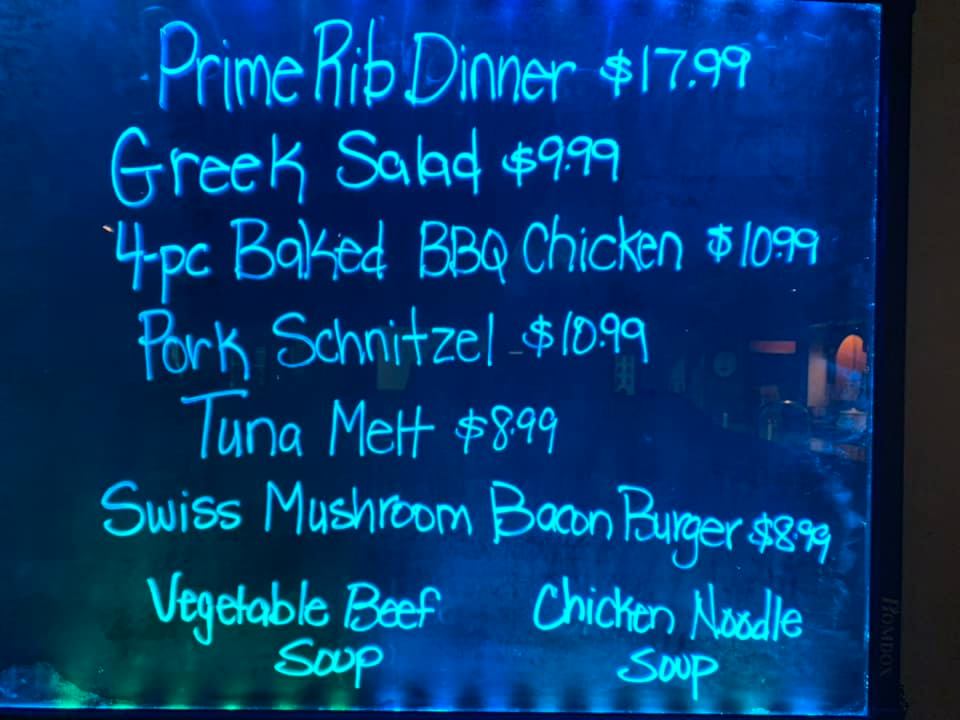 Prime Rib Dinner $17.99
Greek Salad $9.99
4-pc Baked BBQ Chicken $10.99
Pork Schnitzel $10.99
Tuna Melt $8.99
Swiss Mushroom Bacon Burger $8.99
Vegetable Beef Soup
Chicken Noodle Soup